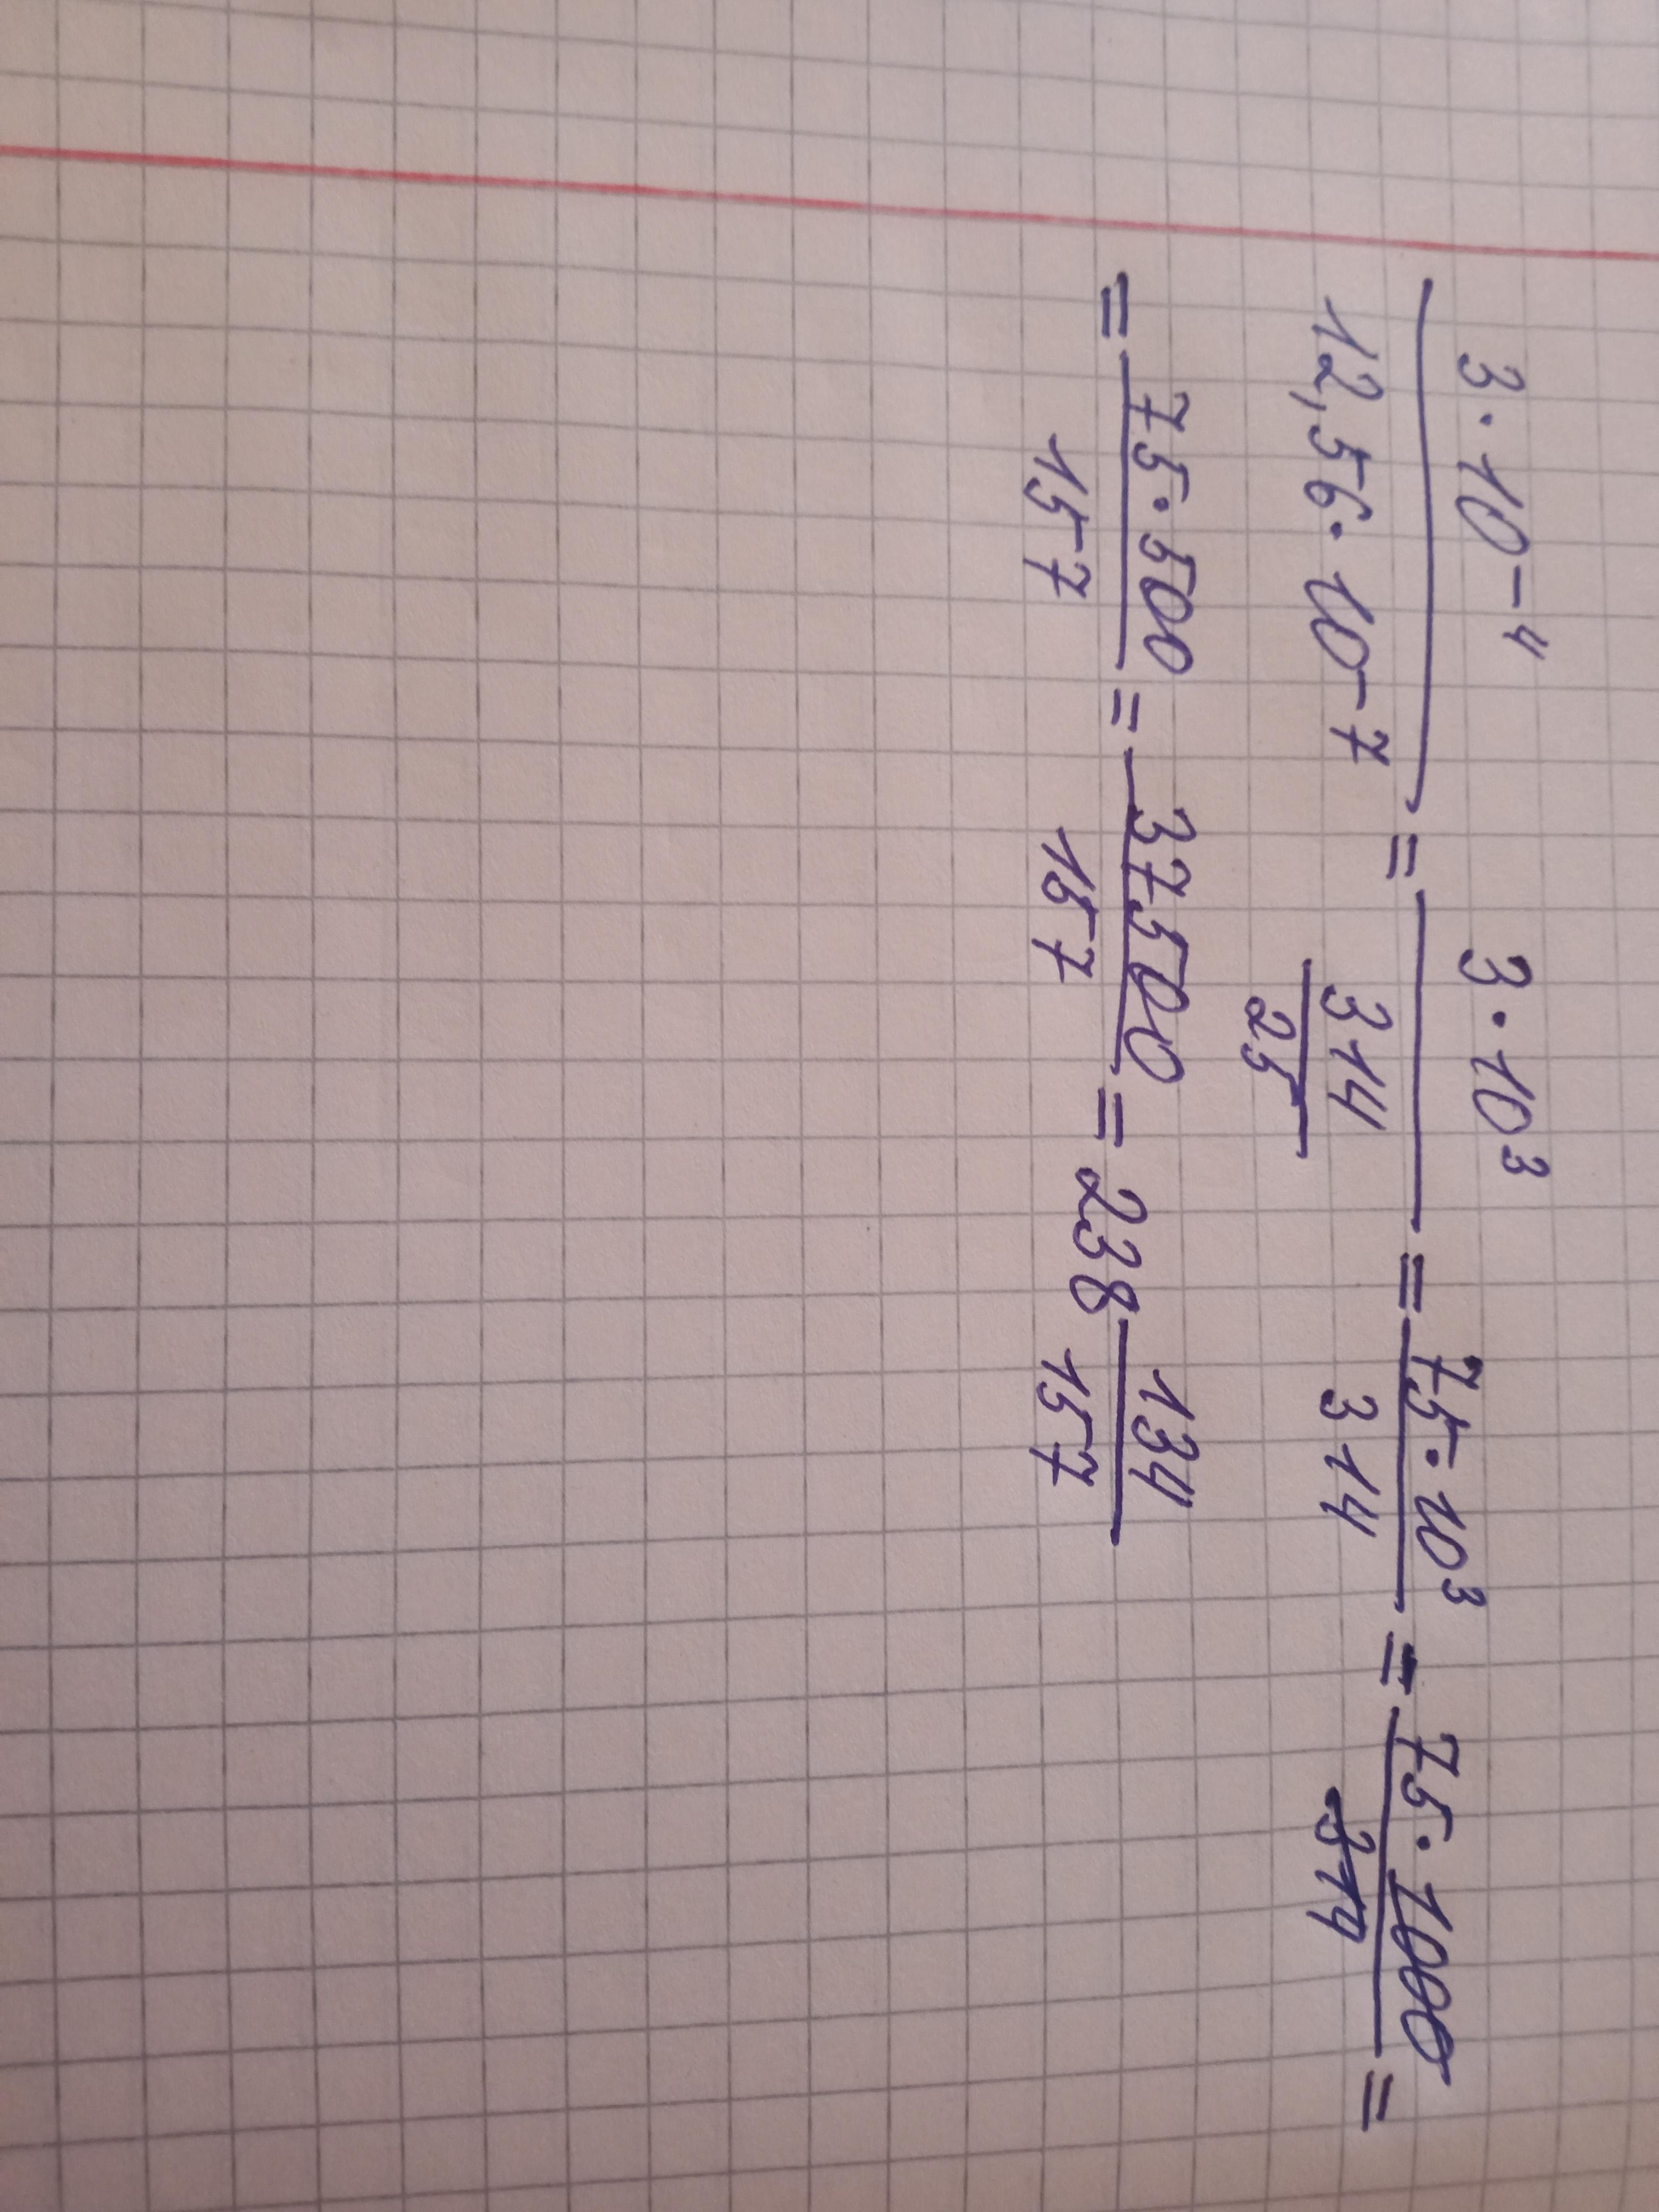 3·10⁻⁴/12,56·10⁻⁷ = 3·10³/(314/25) = 75·10³/314 = 75·1000/314 =
= 75·500/157 = 37500/157 = 238 134/157